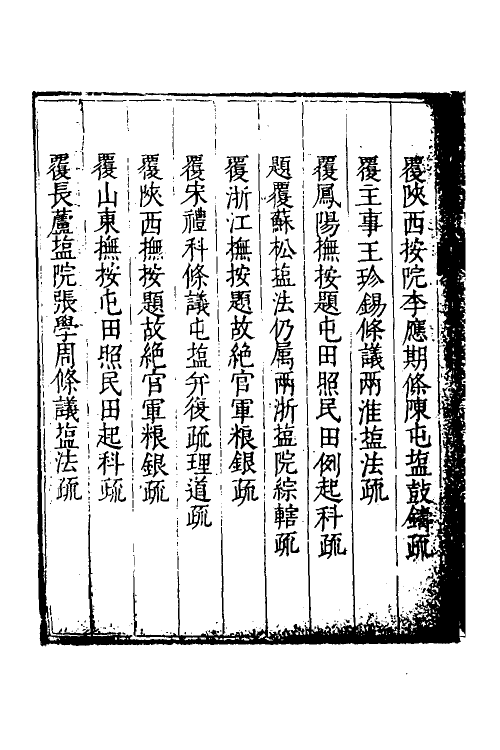 覆陜西按院李應期條陳屯塩鼓鑄疏
覆主事王珍錫條議兩淮塩法疏
覆鳳陽撫按題屯田照民田例起科疏
題覆蘇松塩法仍属兩浙塩院綜轄疏
覆浙江撫按題故絶官軍粮銀疏
覆宋禮科條議屯塩并復疏理道疏
覆陜西撫按題故絶官軍粮銀疏
覆山東撫按屯田照民田起科疏
覆長蘆塩院張學周條議塩法疏